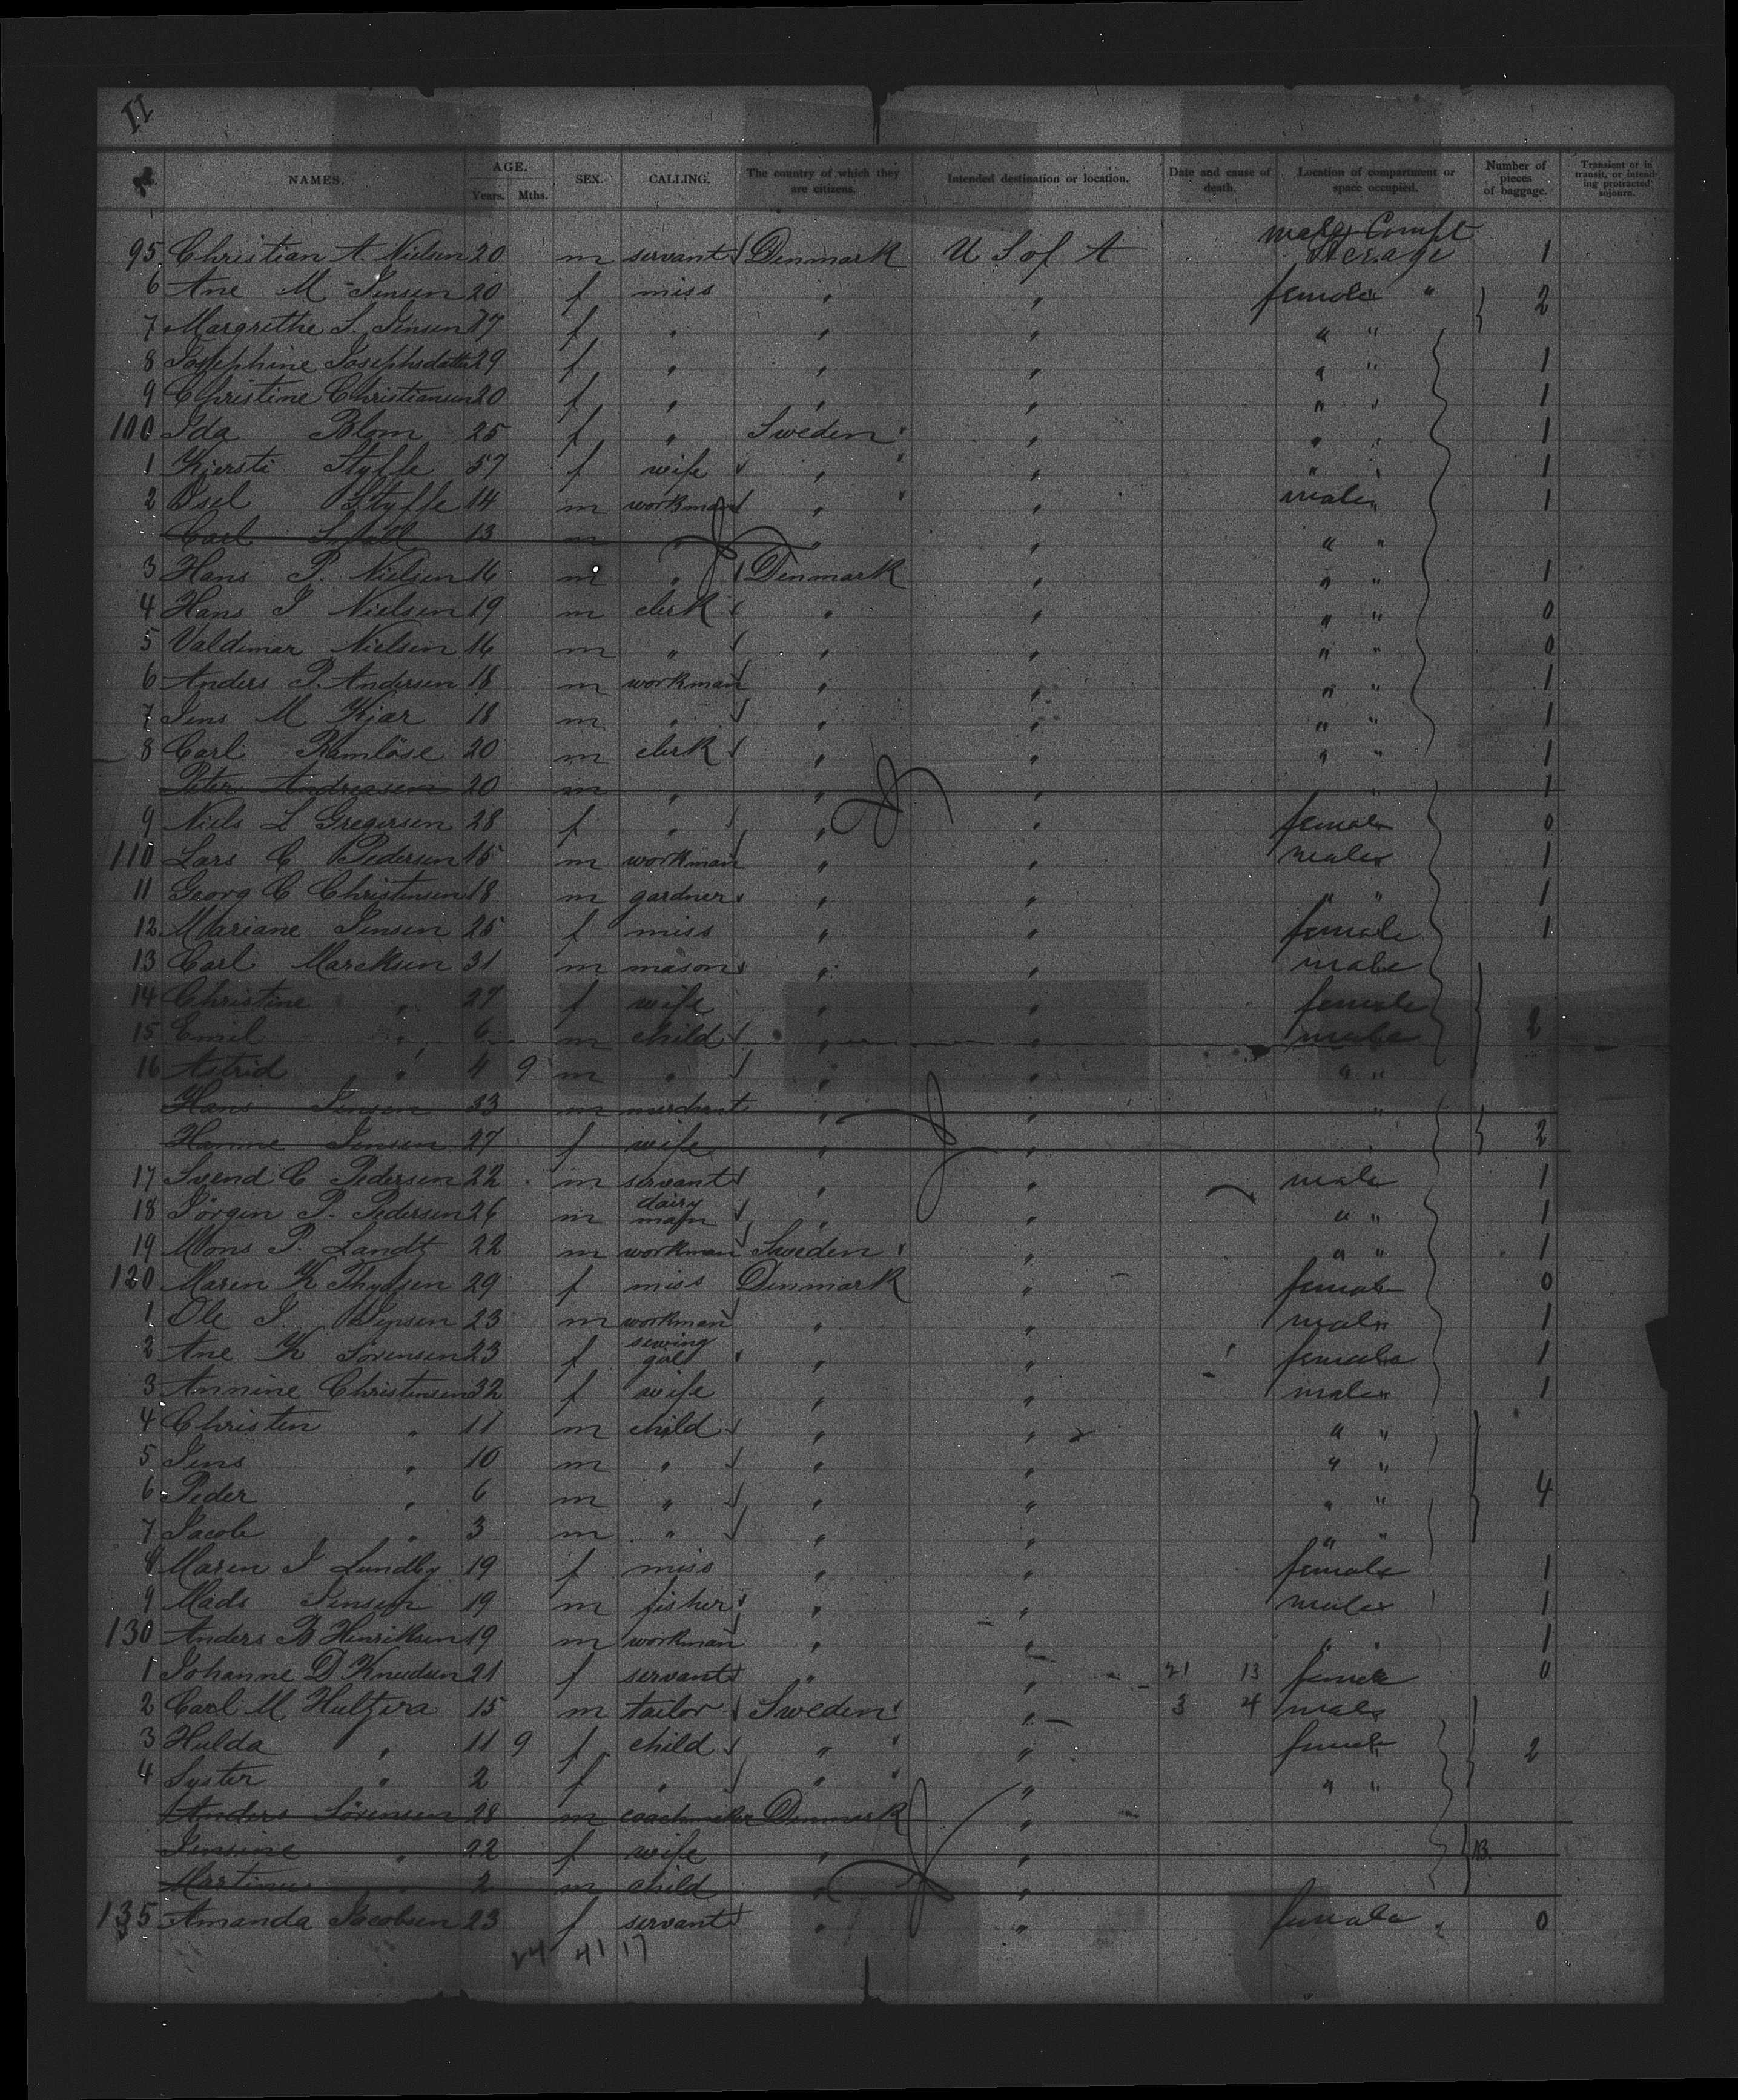 11
NAMES. AGE. Years. Mths. SEX. CALLING. The country of which they are citizens. Intended destination or location. Date and cause of death. Location of compartment or space occupied. Number of pieces of baggage. Transient or in transit, or intending protracted sojourn.
95 Christian A. Nielsen 20 m servant Denmark U S of A male Compt Sterage 1
6 Ane M Jensen 20 f miss " " female " 2
7 Margrethe S. Jensen 17 f " " " " "
8 Josephine Josephsdatter 29 f " " " " " 1
9 Christine Christiansen 20 f " " " " " 1
100 Ida Blom 25 f " Sweden " " " 1
1 Kjersti Styffe 57 f wife " " " " 1
2 Styffe 14 m workman " " male " 1
Carl 13 m " " " " "
3 Hans P. Nielsen 16 m " Denmark " " " 1
4 Hans J Nielsen 19 m clerk " " " " 0
5 Valdemar Nielsen 16 m " " " " " 0
6 Anders P. Andersen 18 m workman " " " " 1
7 Jens M Kjær 18 m " " " " " 1
8 Carl Ramløse 20 m clerk " " " " 1
Peter Andreasen 20 m " " " " 1
9 Niels L Gregersen 28 f " " " female 0
110 Lars C Pedersen 15 m workman " " male " 1
11 Georg C Christensen 18 m gardner " " " " 1
12 Mariane Jensen 25 f miss " " female 1
13 Carl Marcksen 31 m mason " " male
14 Christine " 27 f wife " " female
15 Emil " 6 m child " " male 2
16 Astrid " 4 9 m " " " " "
Hans Jensen 33 m merchant " " "
Hanne Jensen 27 f wife " " " 2
17 Svend C Pedersen 22 m servant " " male 1
18 Jörgen P. Pedersen 26 m dairy man " " " " 1
19 Mons P. Landtz 22 m workman Sweden " " " 1
120 Maren K Thygsen 29 f miss Denmark " female 0
1 Ole J. Jepsen 23 m workman " " male " 1
2 Ane K Sörensen 23 f sewing girl " " female 1
3 Annine Christensen 32 f wife " " male " 1
4 Christen " 11 m child " " " "
5 Jens " 10 m " " " " "
6 Peder " 6 m " " " " " 4
7 Jacob " 3 m " " " " "
8 Maren J Lundby 19 f miss " " female 1
9 Mads Jensen 19 m fisher " " male " 1
130 Anders B Henriksen 19 m workman " " " " 1
1 Johanne D Knudsen 21 f servant " " 21 13 female 0
2 Carl M 15 m tailor Sweden " 3 4 male
3 Hulda " 11 9 f child " " female 2
4 Syster " 2 f " " " " "
Anders Sörensen 28 m coachmaker Denmark "
Jensine " 22 f wife " "
Martinus " 2 m child " "
135 Amanda Jacobsen 23 f servant " " female " 0
24 41 17